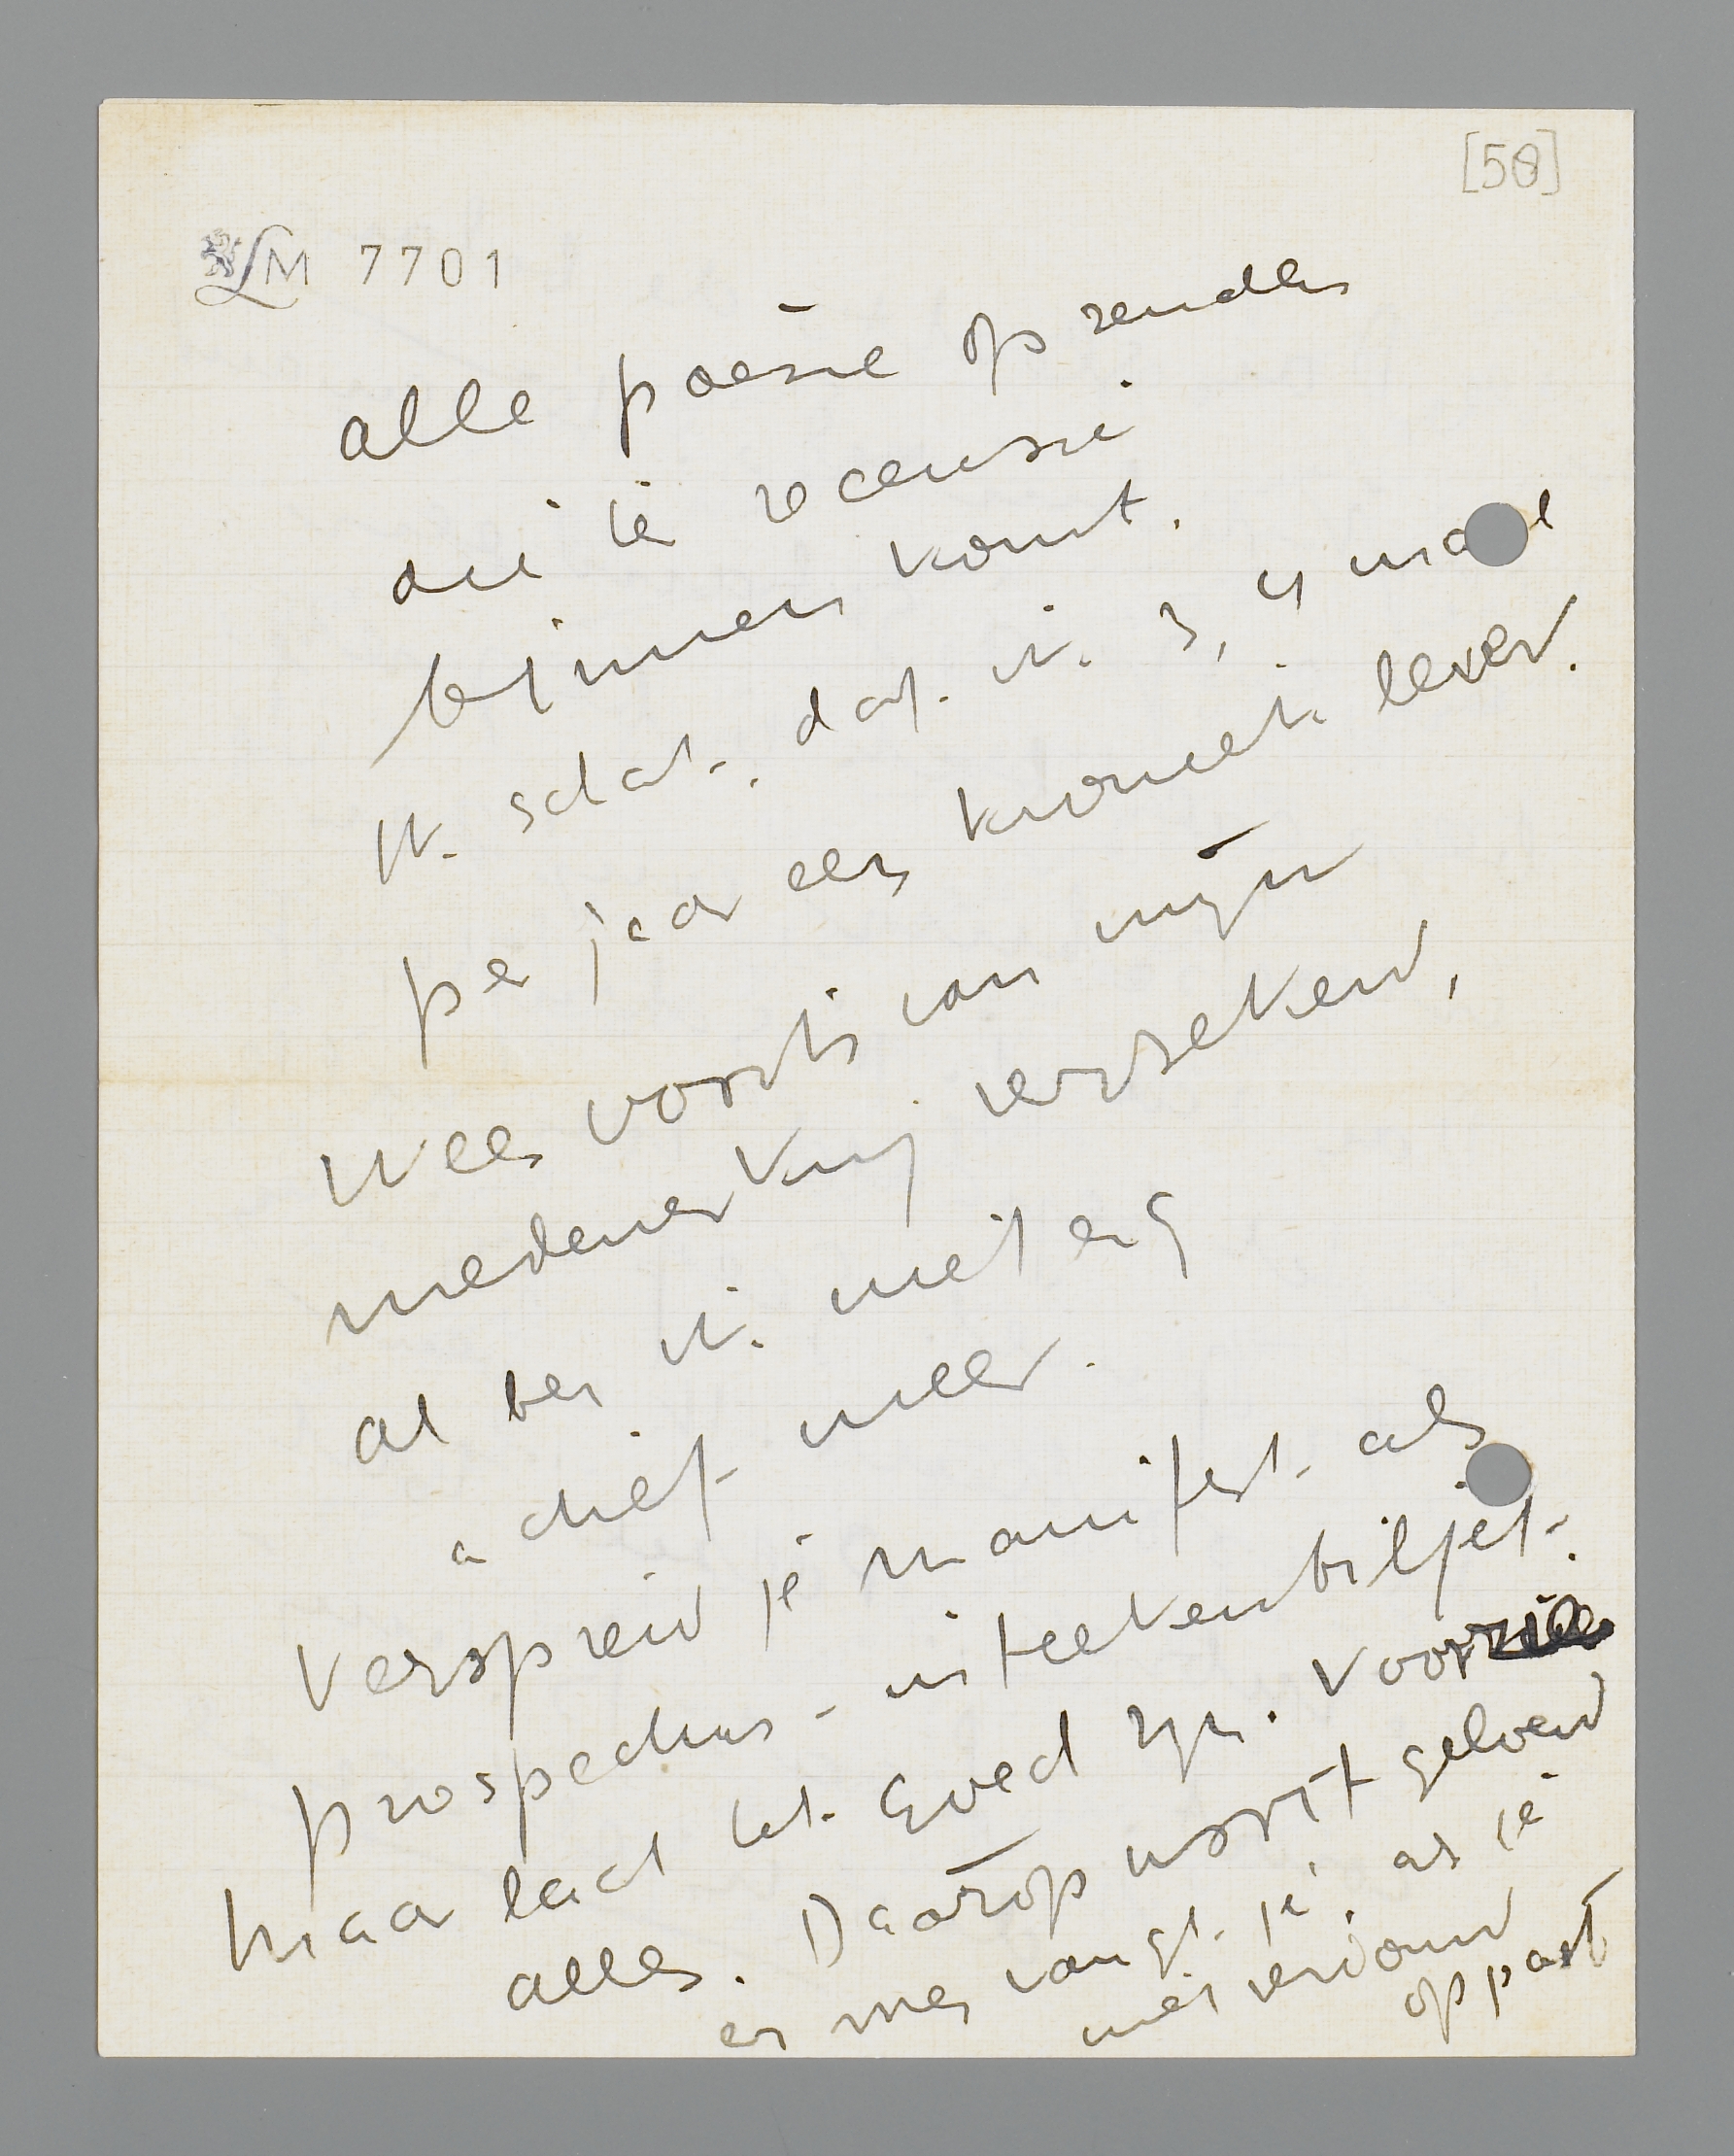 [50]
LM 7701
alle poëzie op zenden
die te recensie
binnen komt.
Ik schat, dat ik 3, 4 maal
per jaar een kroniek lever.
Wees voorts van mijn
medewerking verzekerd,
al ben ik niet erg
actief meer.
Verspreid je manifest als
prospectus-inteekenbiljet.
Maar laat het goed zijn. Voor
alles. Daarop wordt geloerd
en men vangt je, als je
niet verdomd
oppast